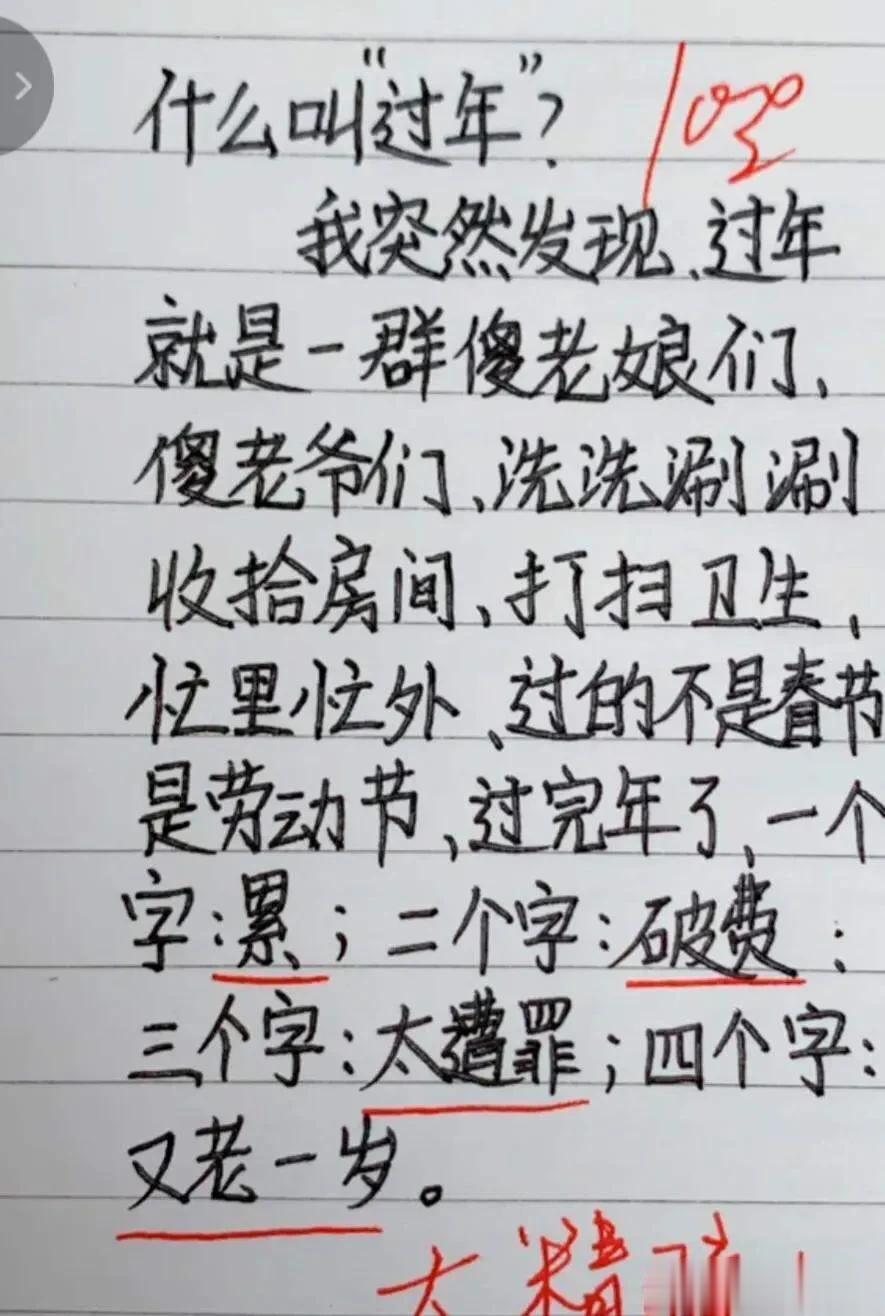 什么叫“过年”?
我突然发现、过年
就是一群傻老娘们、
傻老爷们、洗洗涮涮
收拾房间、打扫卫生、
忙里忙外、过的不是春节
是劳动节、过完年了、一个
字:累;二个字:破费:
三个字:太遭罪;四个字:
又老一岁。
太精